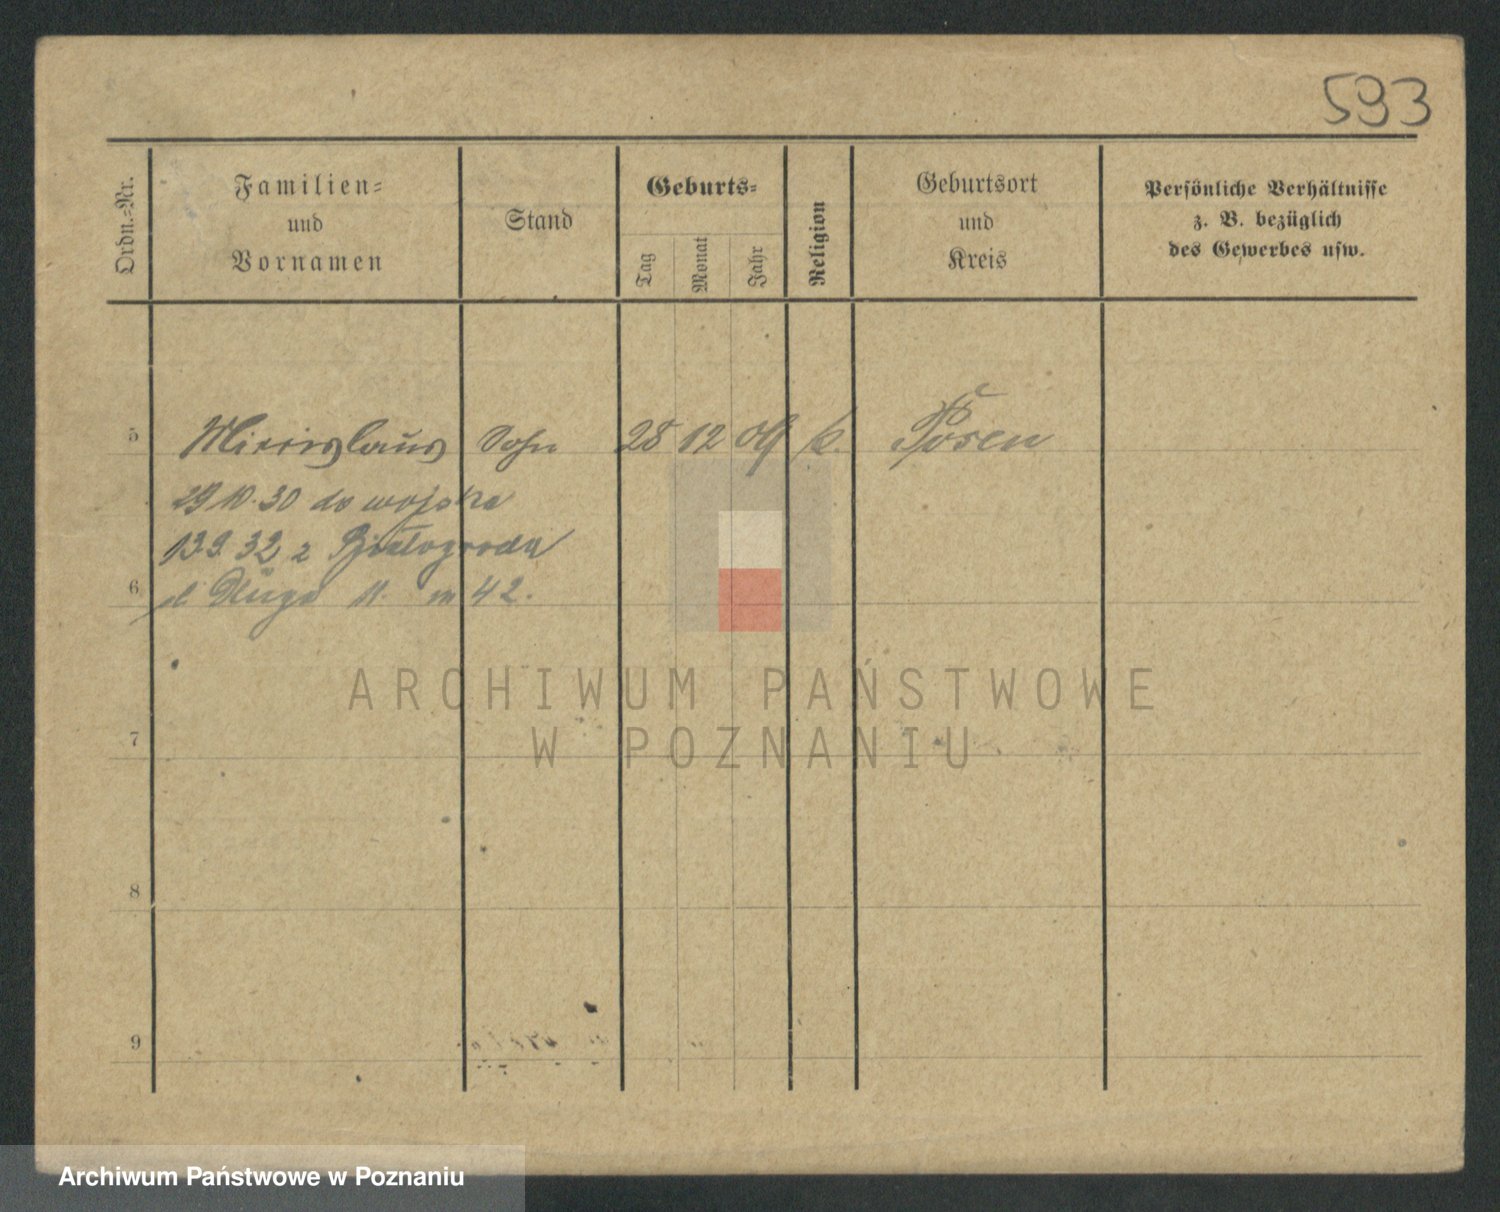 593
Ordn.-Nr.
Familien-
und
Vornamen
Stand
Geburts-
Tag
Monat
Jahr
Religion
Geburtsort
und
Kreis
Persönliche Verhältnisse
z. B. bezüglich
des Gewerbes usw.
5 Miecislaus Sohn 28 12 09 k. Posen
29 10. 30 do wojska
13.9. 32 z Białogrodu
6
ul Długa 11. m 42.
ARCHIWUM PAŃSTWOWE
W POZNANIU
7
8
9
Archiwum Państwowe w Poznaniu